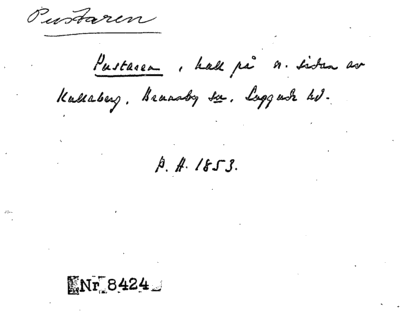 Pustaren
Pustaren, hall på n. sidan av
Kullaberg, Brunnby sn, Luggude hd.
P. A. 1853.
Nr 8424